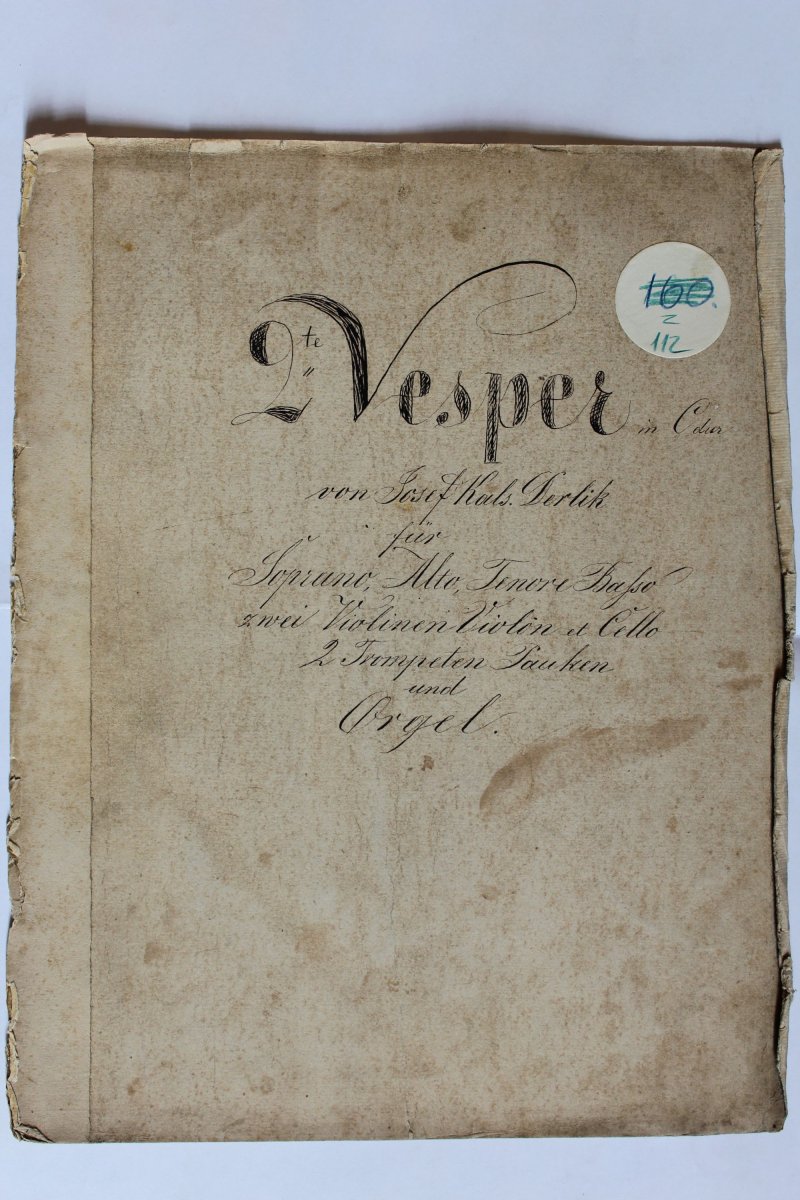 160.
Z
112
2te Vesper in C dur
von Josef Kals. Derlik
für
Soprano, Alto, Tenore Baſso
zwei Violinen Violon et Cello
2 Trompeten Pauken
und
Orgel.